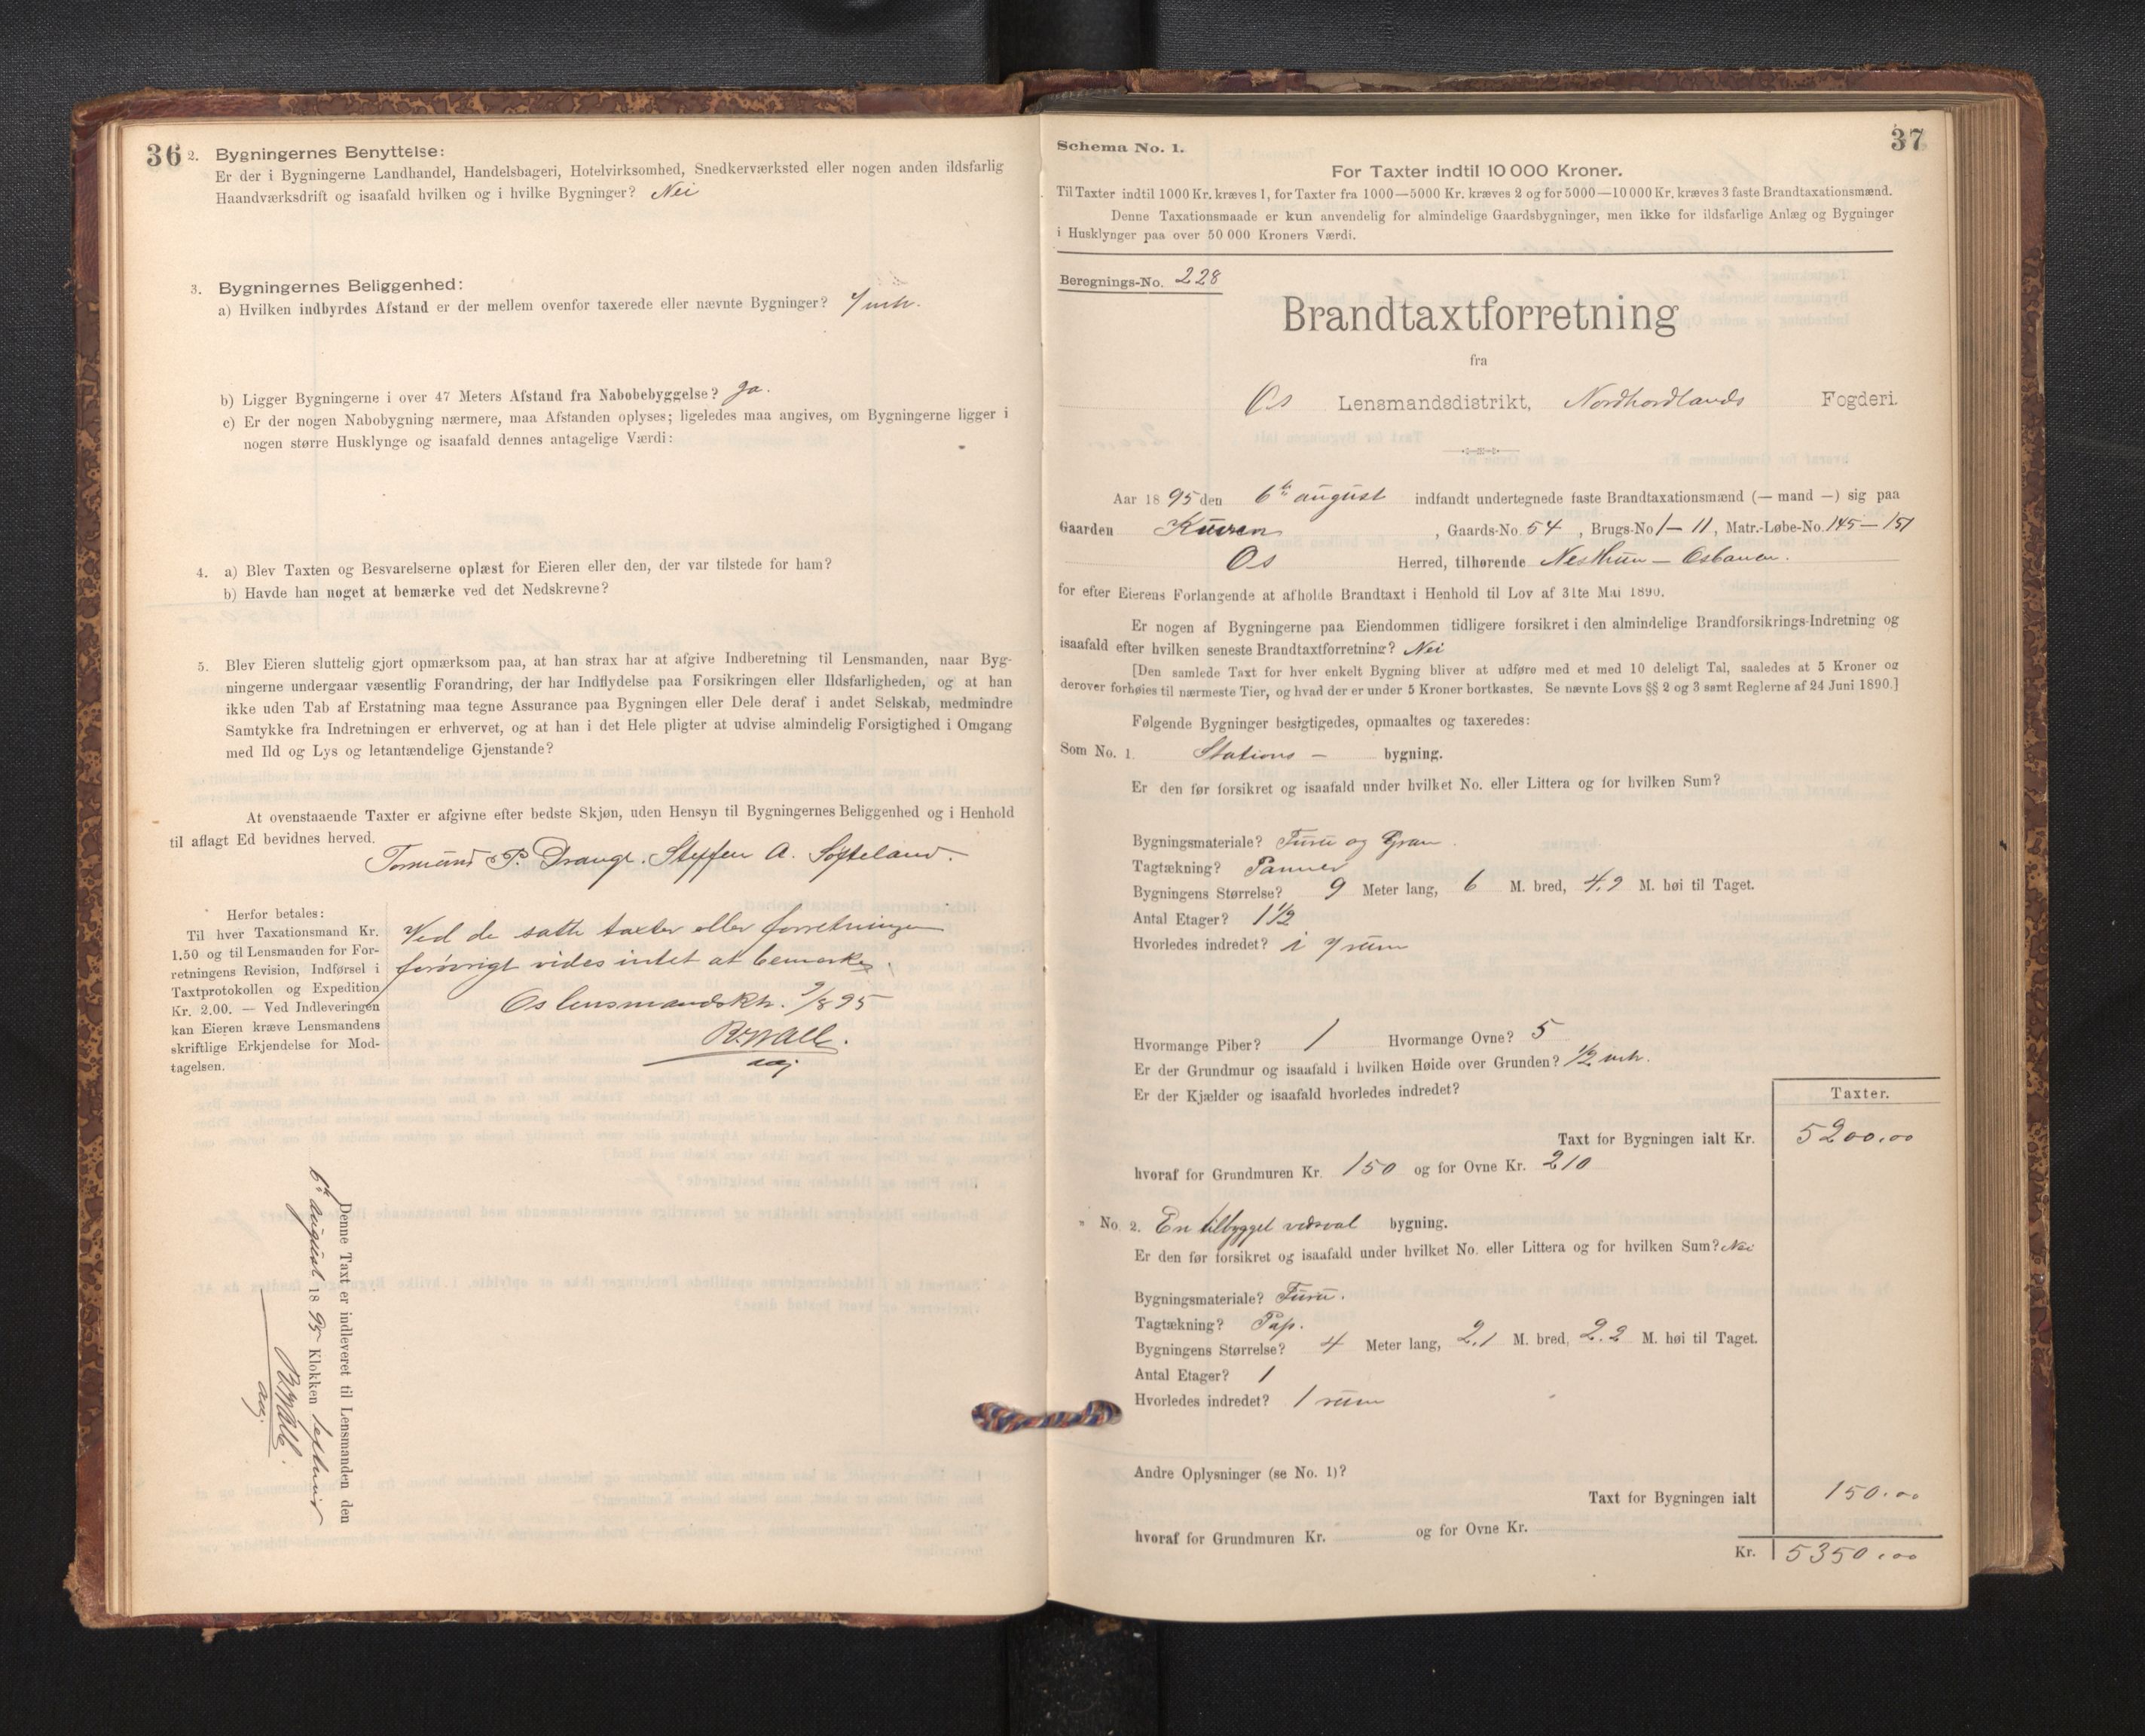 36
2. Bygningernes Benyttelse:
Er der i Bygningerne Landhandel, Handelsbageri, Hotelvirksomhed, Snedkerværksted eller nogen anden ildsfarlig
Haandværksdrift og isaafald hvilken og i hvilke Bygninger? Nei
3. Bygningernes Beliggenhed:
a) Hvilken indbyrdes Afstand er der mellem ovenfor taxerede eller nævnte Bygninger?
b) Ligger Bygningerne i over 47 Meters Afstand fra Nabobebyggelse? Ja.
c) Er der nogen Nabobygning nærmere, maa Afstanden oplyses; ligeledes maa angives, om Bygningerne ligger i
nogen større Husklynge og isaafald dennes antagelige Værdi:
4. a) Blev Taxten og Besvarelserne oplæst for Eieren eller den, der var tilstede for ham?
b) Havde han noget at bemærke ved det Nedskrevne?
5. Blev Eieren sluttelig gjort opmærksom paa, at han strax har at afgive Indberetning til Lensmanden, naar Byg-
ningerne undergaar væsentlig Forandring, der har Indflydelse paa Forsikringen eller Ildsfarligheden, og at han
ikke uden Tab af Erstatning maa tegne Assurance paa Bygningen eller Dele deraf i andet Selskab, medmindre
Samtykke fra Indretningen er erhvervet, og at han i det Hele pligter at udvise almindelig Forsigtighed i Omgang
med Ild og Lys og letantændelige Gjenstande?
At ovenstaaende Taxter er afgivne efter bedste Skjøn, uden Hensyn til Bygningernes Beliggenhed og i Henhold
til aflagt Ed bevidnes herved.
Tormund P. Drange. Steffen A. Søfteland.
Herfor betales:
Til hver Taxationsmand Kr.
1.50 og til Lensmanden for For-
retningens Revision, Indførsel i
Taxtprotokollen og Expedition
Kr. 2.00. — Ved Indleveringen
kan Eieren kræve Lensmandens
skriftlige Erkjendelse for Mod-
tagelsen.
Ved de satte taxter eller forretningen
forøvrigt vides intet at bemerke.
Os lensmandsktr. 9/8 95
Denne Taxt er indleveret til Lensmanden den
6te august 1895 Klokken
37
Schema No. 1.
For Taxter indtil 10 000 Kroner.
Til Taxter indtil 1000 Kr. kræves 1, for Taxter fra 1000—5000 Kr. kræves 2 og for 5000—10 000 Kr. kræves 3 faste Brandtaxationsmænd.
Denne Taxationsmaade er kun anvendelig for almindelige Gaardsbygninger, men ikke for ildsfarlige Anlæg og Bygninger
i Husklynger paa over 50 000 Kroners Værdi.
Beregnings-No. 228
Brandtaxtforretning
fra
Os Lensmandsdistrikt, Nordhordlands Fogderi.
Aar 1895 den 6te august indfandt undertegnede faste Brandtaxationsmænd (— mand —) sig paa
Gaarden Kuven, Gaards-No. 54, Brugs-No 1—11, Matr.-Løbe-No. 145—151
Os Herred, tilhørende Nesttun—Osbanen.
for efter Eierens Forlangende at afholde Brandtaxt i Henhold til Lov af 31te Mai 1890.
Er nogen af Bygningerne paa Eiendommen tidligere forsikret i den almindelige Brandforsikrings-Indretning og
isaafald efter hvilken seneste Brandtaxtforretning? Nei
[Den samlede Taxt for hver enkelt Bygning bliver at udføre med et med 10 deleligt Tal, saaledes at 5 Kroner og
derover forhøies til nærmeste Tier, og hvad der er under 5 Kroner bortkastes. Se nævnte Lovs §§ 2 og 3 samt Reglerne af 24 Juni 1890.]
Følgende Bygninger besigtigedes, opmaaltes og taxeredes:
Som No. 1. Stations — bygning.
Er den før forsikret og isaafald under hvilket No. eller Littera og for hvilken Sum?
Bygningsmateriale? Furu og Gran.
Tagtækning? Panner
Bygningens Størrelse? 9 Meter lang, 6 M. bred, 4.9 M. høi til Taget.
Antal Etager? 1½
Hvorledes indredet? i 7 rum
Hvormange Piber? 1 Hvormange Ovne? 5
Er der Grundmur og isaafald i hvilken Høide over Grunden? ½ mtr.
Er der Kjælder og isaafald hvorledes indredet?
Taxter.
Taxt for Bygningen ialt Kr. 5200.00
hvoraf for Grundmuren Kr. 150 og for Ovne Kr. 210
" No. 2. En tilbygget vedsval bygning.
Er den før forsikret og isaafald under hvilket No. eller Littera og for hvilken Sum? Nei
Bygningsmateriale? Furu.
Tagtækning? Pap.
Bygningens Størrelse? 4 Meter lang, 2.1 M. bred, 2.2 M. høi til Taget.
Antal Etager? 1
Hvorledes indredet? 1 rum
Andre Oplysninger (se No. 1)?
Taxt for Bygningen ialt 150.00
hvoraf for Grundmuren Kr. og for Ovne Kr.
Kr. 5350.00